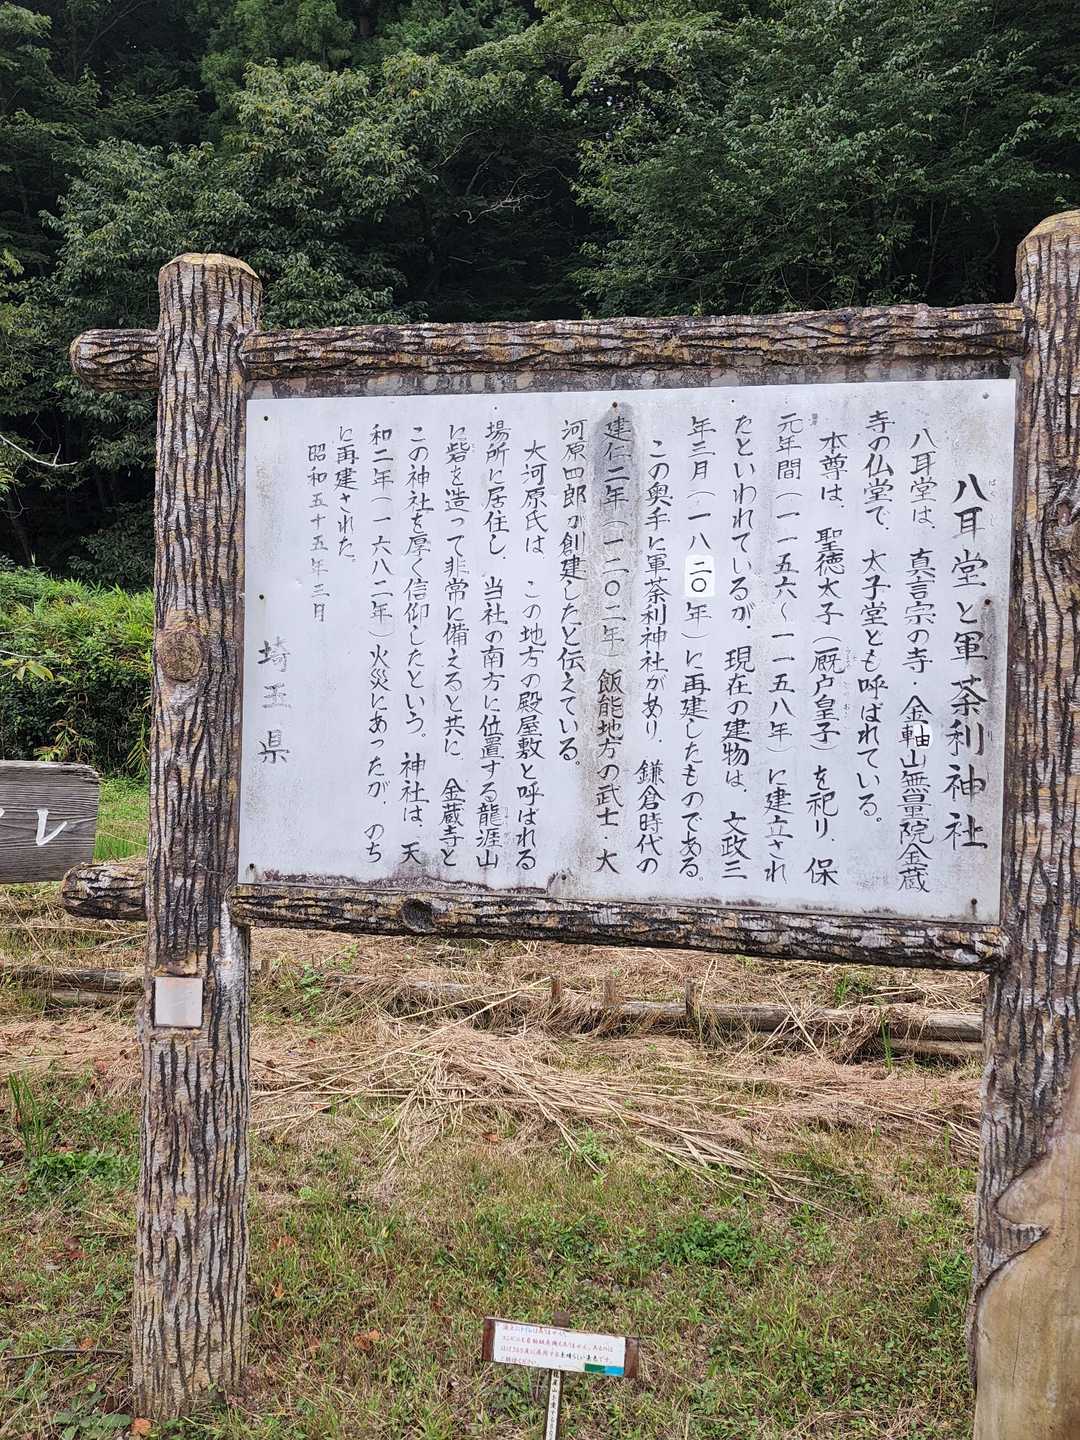 八耳堂と軍荼利神社
八耳堂は、真言宗の寺、金軸山無量院金蔵
寺の仏堂で、太子堂とも呼ばれている。
本尊は、聖徳太子(厩戸皇子)を祀り、保
元年間(一一五六〜一一五八年)に建立され
たといわれているが、現在の建物は、文政三
年三月(一八二〇年)に再建したものである。
この奥手に軍荼利神社があり、鎌倉時代の
建仁二年(一二〇二年)飯能地方の武士 大
河原四郎が創建したと伝えている。
大河原氏は この地方の殿屋敷と呼ばれる
場所に居住し、当社の南方に位置する龍涯山
に砦を造って非常に備えると共に、金蔵寺と
この神社を厚く信仰したという。神社は、天
和二年(一六八二年)火災にあったが、のち
に再建された。
昭和五十五年三月
埼玉県
レ